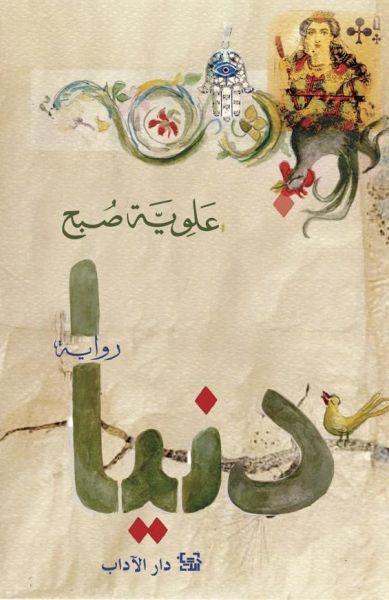 Q
عَلويَّة صُبح
رواية
دنيا
دار الآداب